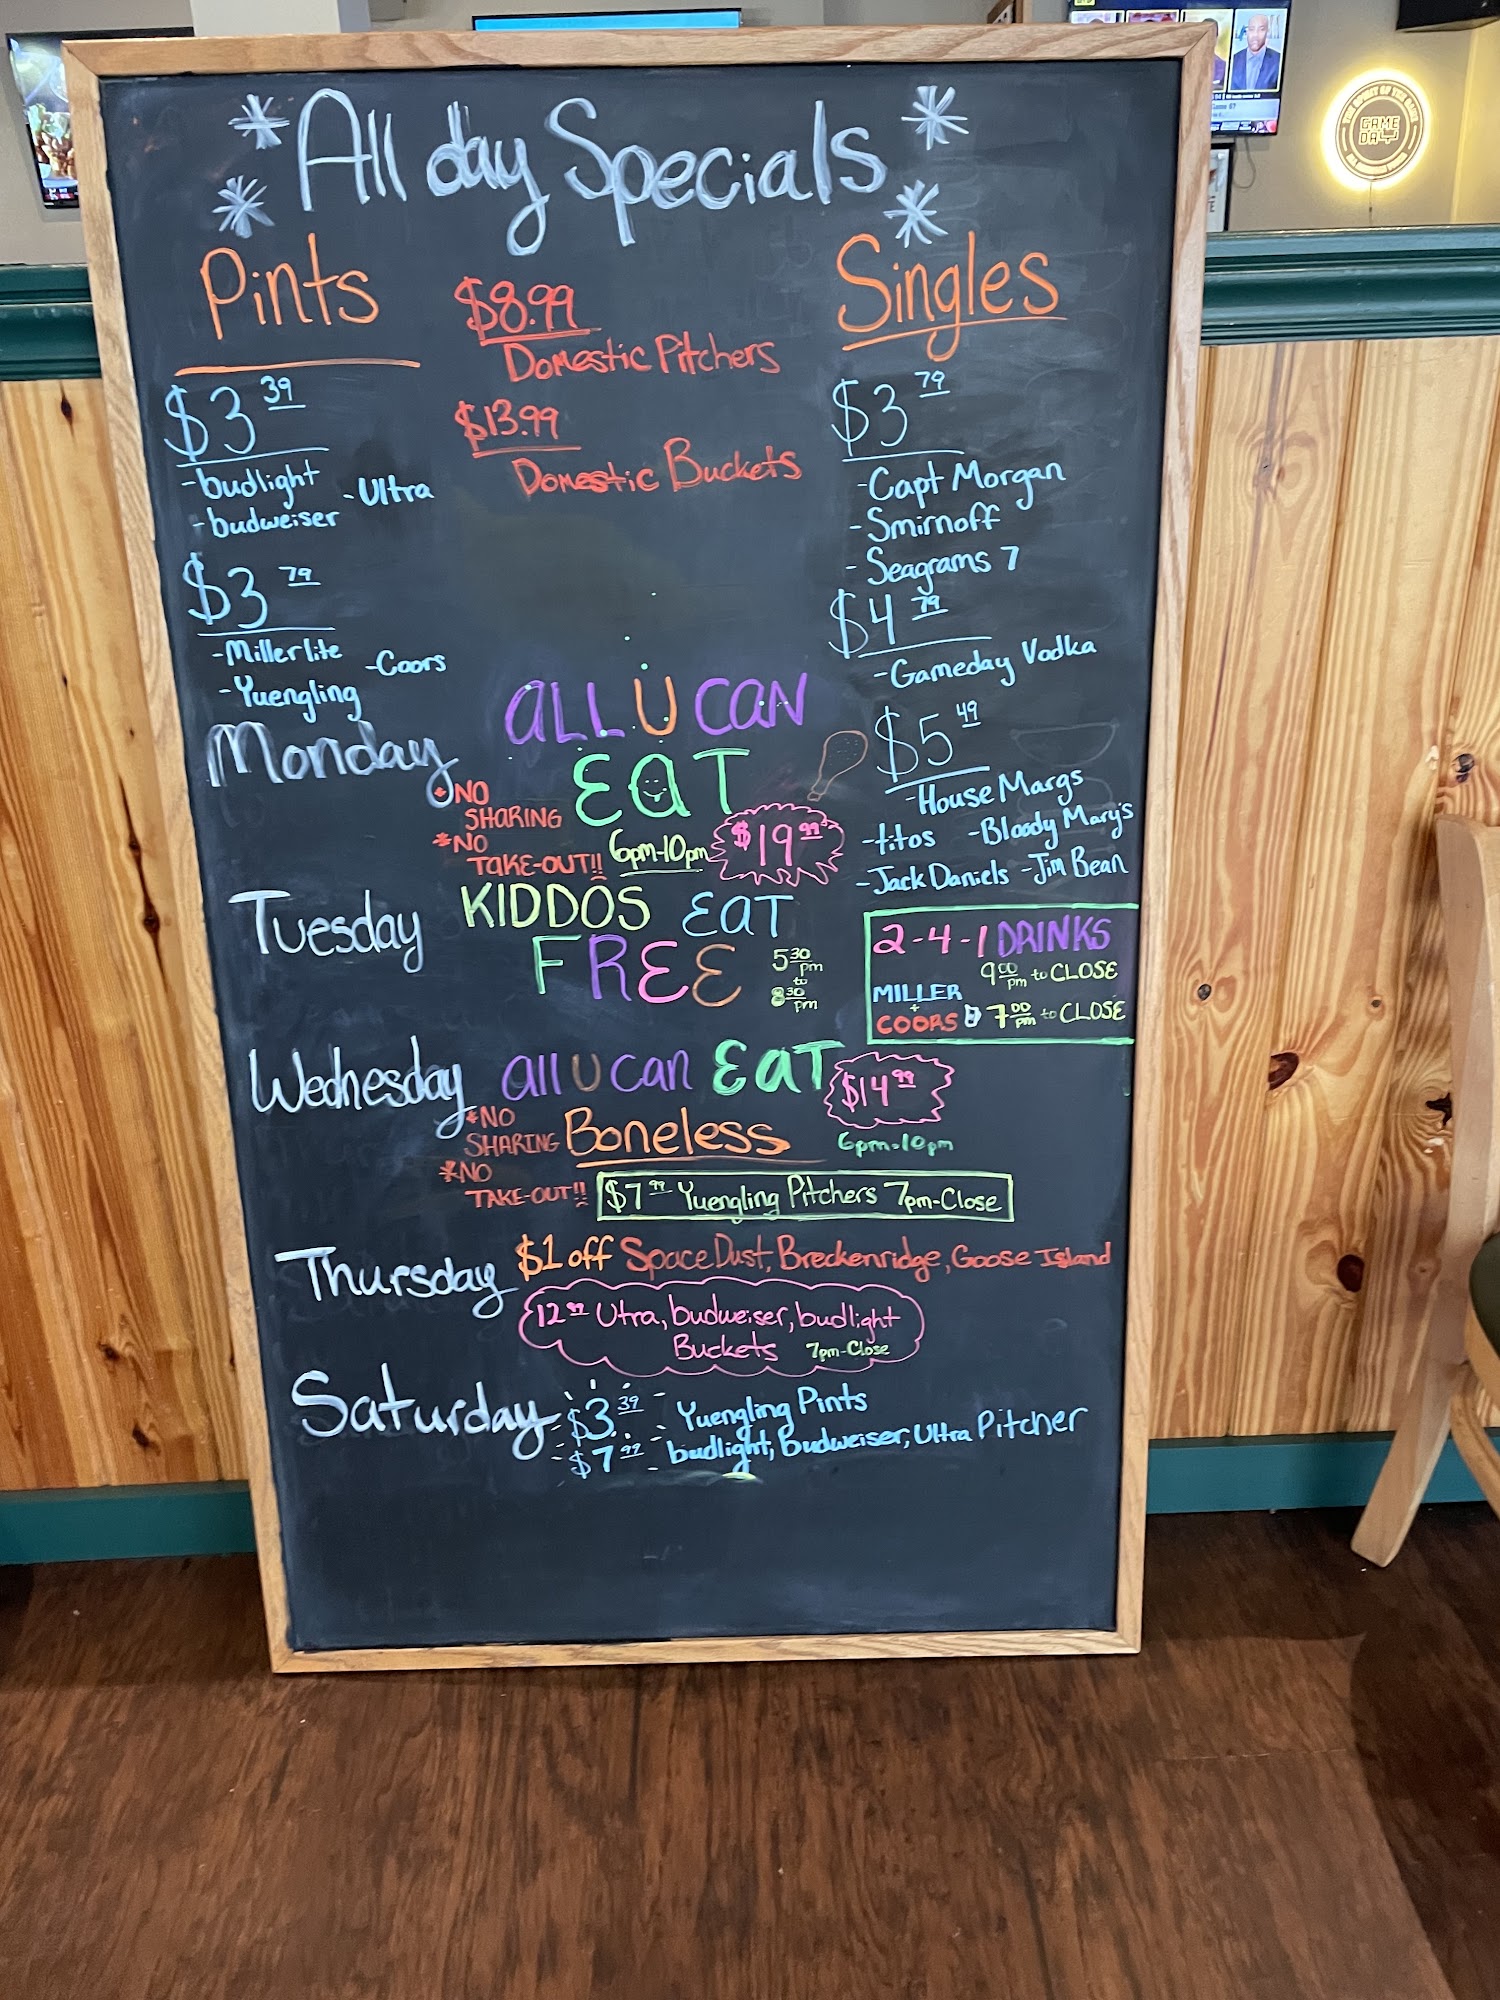 * All day Specials *
Pints
$3.39
-budlight
-Ultra
-budweiser
$3.79
-Miller lite
-Coors
-Yuengling
$8.99
Domestic Pitchers
$13.99
Domestic Buckets
Singles
$3.79
-Capt Morgan
-Smirnoff
- Seagrams 7
$4.79
-Gameday Vodka
$5.49
-House Margs
-titos -Bloody Mary's
-Jack Daniels -Jim Bean
Monday
ALL U CAN
EAT
*NO
SHARING
*NO
TAKE-OUT!!
6pm-10pm
$19.99
Tuesday
KIDDOS EAT
FREE
5:30 pm
to
8:30 pm
2-4-1 DRINKS
9:00 pm to CLOSE
MILLER
+
COORS
7:00 pm to CLOSE
Wednesday
all U can Eat
$14.99
*NO
SHARING
Boneless
6pm-10pm
*NO
TAKE-OUT!!
$7.99 Yuengling Pitchers 7pm-Close
Thursday
$1 off Space Dust, Breckenridge, Goose Island
12.99 Utra, budweiser, budlight
Buckets 7pm-Close
Saturday
$3.39 Yuengling Pints
$7.99 budlight, Budweiser, Ultra Pitcher
THE SPIRIT OF THE GAME
GAME
DAY